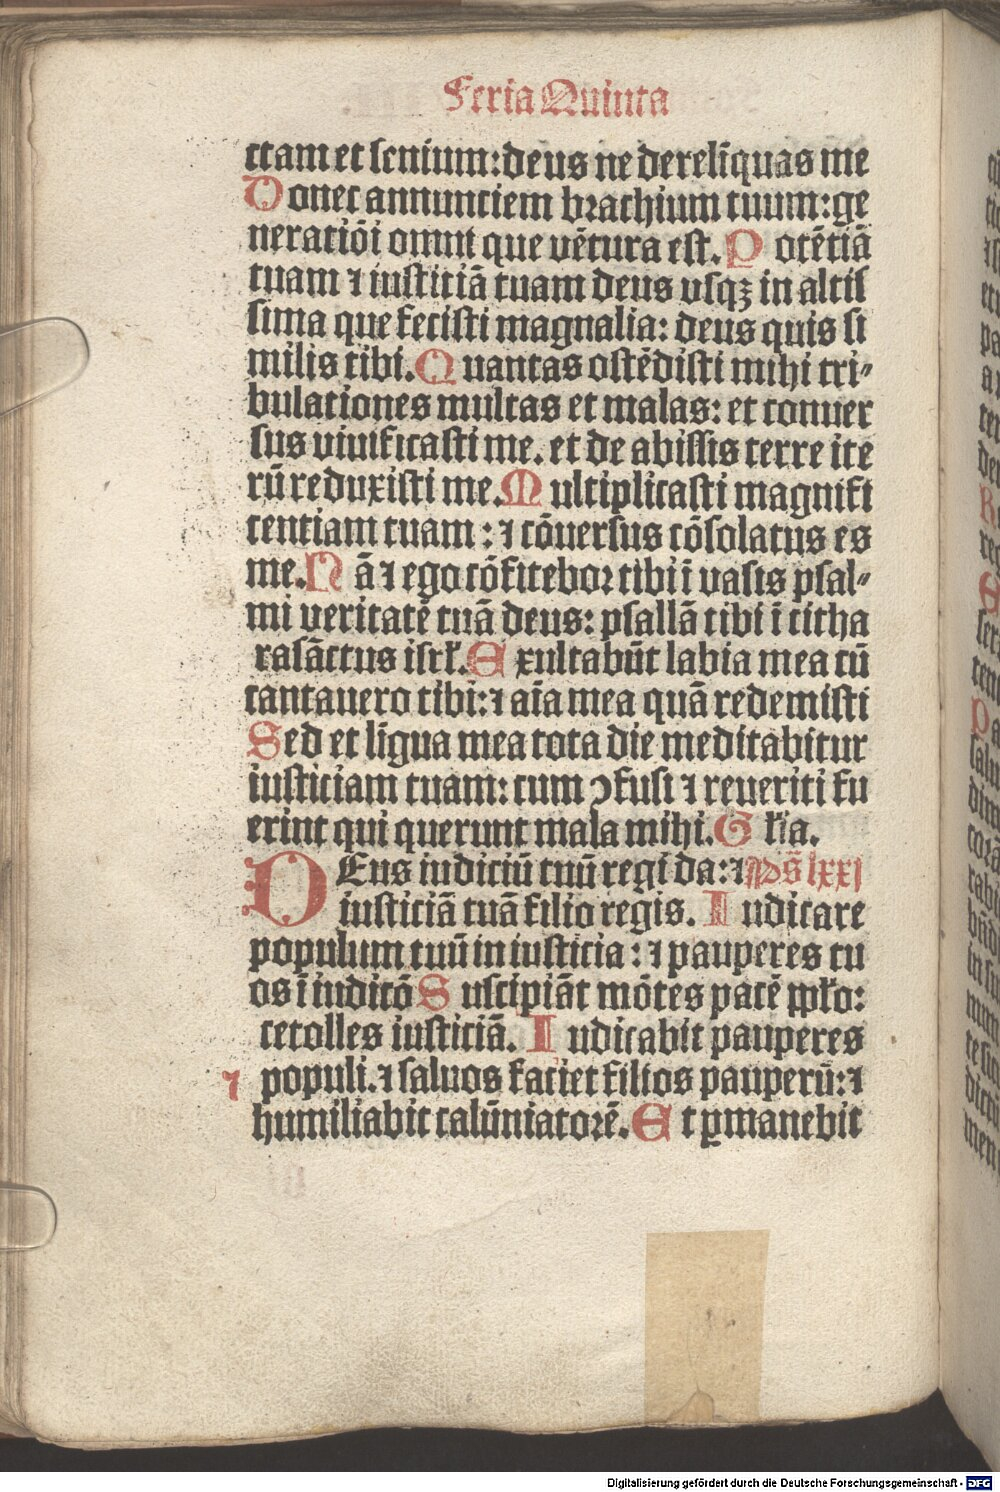 Feria Quinta
ctam et senium: deus ne derelīquas me
Donec annunciem brachium tuum: ge
neratiōi omni que vētura est. Potētiā
tuam ⁊ iusticiā tuam deus vsqꝫ in altis
sima que fecisti magnalia: deus quis si
milis tibi. Quantas ostēdisti mihi tri⸗
bulationes multas et malas: et conuer
sus viuificasti me. et de abissis terre ite
rū reduxisti me. Multiplicasti magnifi
centiam tuam: ⁊ cōuersus cōsolatus es
me. Nā ⁊ ego cōfitebor tibi ī vasis psal⸗
mi veritatē tuā deus: psallā tibi ī citha
ra sāctus isrł. Exultabūt labia mea cū
cantauero tibi: ⁊ aīa mea quā redemisti
Sed et līgua mea tota die meditabitur
iusticiam tuam: cum ɔfusi ⁊ reueriti fu
erint qui querunt mala mihi. Głia.
DEus iudiciū tuū regi da: ⁊ Ps̄ lxxi
iusticiā tuā filio regis. Iudicare
populum tuū in iusticia: ⁊ pauperes tu
os ī iudicō Suscipiāt mōtes pacē ppło:
et colles iusticiā. Iudicabit pauperes
⁊ populi. ⁊ saluos faciet filios pauperū: ⁊
humiliabit calūniatorē. Et ꝑmanebit
Digitalisierung gefördert durch die Deutsche Forschungsgemeinschaft - DFG